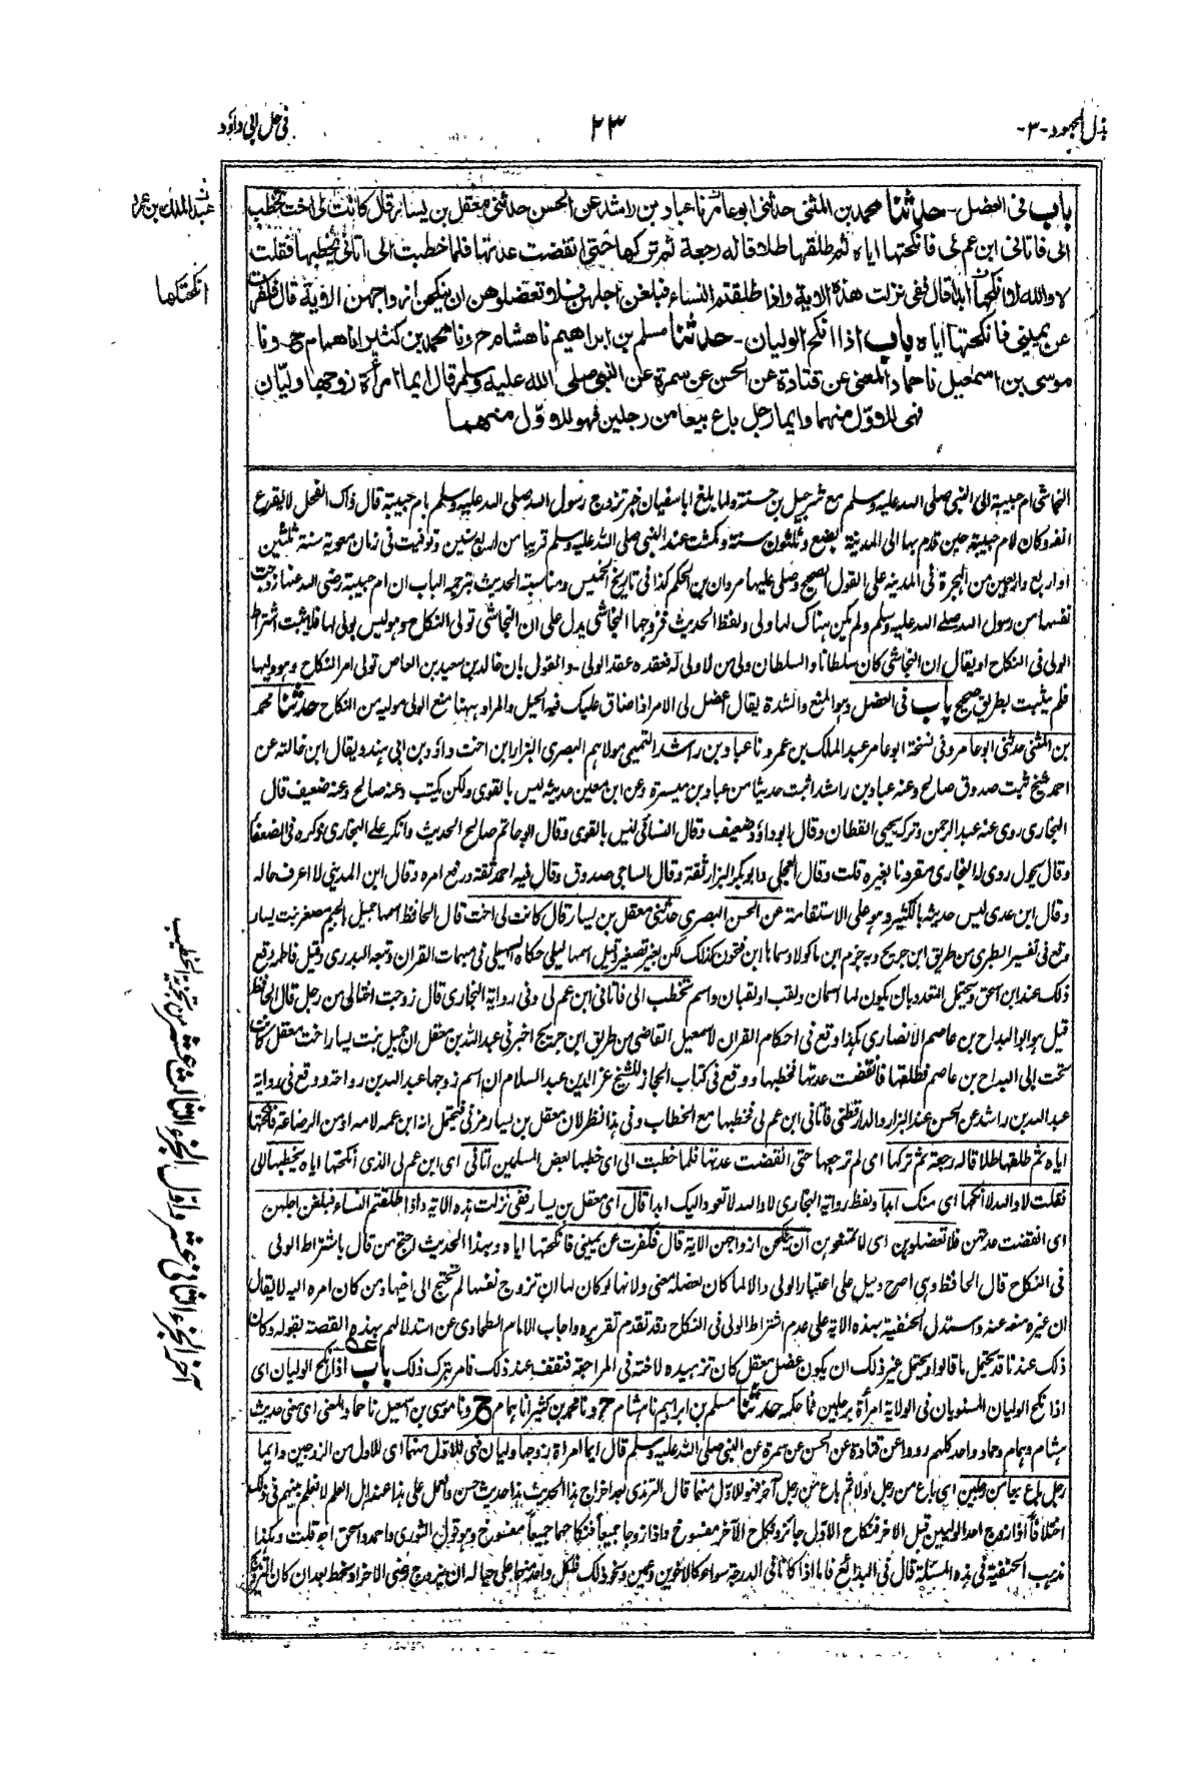 بذل المجهود -٣-
٢٣
فی حل ابی داؤد
باب فی العضل - حدثنا محمد بن المثنی حدثنی ابو عامر نا عباد بن راشد عن الحسن حدثنی معقل بن یسار قال کانت لی اخت تخطب
الی فاتانی ابن عم لی فانکحتها ایاه ثم طلقها طلاقا له رجعة ثم ترکها حتی انقضت عدتها فلما خطبت الی اتانی یخطبها فقلت
لا والله لا انکحها ابدا قال ففی نزلت هذه الایة واذا طلقتم النساء فبلغن اجلهن فلا تعضلوهن ان ینکحن ازواجهن الایة قال فکفرت
عن یمینی فانکحتها ایاه باب اذا انکح الولیان - حدثنا مسلم بن ابراهیم نا هشام ح ونا محمد بن کثیر انا همام ح ونا
موسی بن اسمعیل نا حماد المعنی عن قتادة عن الحسن عن سمرة عن النبی صلی الله علیه وسلم قال ایما امرأة زوجها ولیان
فهی للاول منهما وایما رجل باع بیعا من رجلین فهو للاول منهما
عبد الملك بن عمرو
انکحتکها
النجاشی ام حبیبة الی النبی صلی الله علیه وسلم مع شرحبیل بن حسنة ولما بلغ ابا سفیان خبر تزوج رسول الله صلی الله علیه وسلم بام حبیبة قال ذاك الفحل لا یقرع
انفه وکان لام حبیبة حین قدم بها الی المدینة بضع وثلثون سنة ومکثت عند النبی صلی الله علیه وسلم قریبا من اربع سنین وتوفیت فی زمان معویة سنة ثلثین
او اربع واربعین من الهجرة فی المدینة علی القول الصحیح وصلی علیها مروان بن الحکم کذا فی تاریخ الخمیس ومناسبة الحدیث بترجمة الباب ان ام حبیبة رضی الله عنها زوجت
نفسها من رسول الله صلی الله علیه وسلم ولم یکن هناك لها ولی ولفظ الحدیث فزوجها النجاشی یدل علی ان النجاشی تولی النکاح وهو لیس بولی لها فلا یثبت اشتراط
الولی فی النکاح او یقال ان النجاشی کان سلطانا والسلطان ولی من لا ولی له فعقده عقد الولی والقول بان خالد بن سعید بن العاص تولی امر النکاح وهو ولیها
فلم یثبت بطریق صحیح باب فی العضل وهو المنع والشدة یقال اعضل لی الامر اذا ضاق علیك فیه الحیل والمراد ههنا منع الولی مولیه من النکاح حدثنا محمد
بن المثنی حدثنی ابو عامر وفی نسخة ابو عامر عبد الملك بن عمرو نا عباد بن راشد التمیمی مولاهم البصری البزار ابن اخت داؤد بن ابی هند ویقال ابن خالته عن
احمد شیخ ثبت صدوق صالح وعنه عباد بن راشد اثبت حدیثا من عباد بن میسرة وعن ابن معین حدیثه لیس بالقوی ولکن یکتب وعنه صالح وعنه ضعیف قال
البخاری روی عنه عبد الرحمن وترکه یحیی القطان وقال ابو داؤد ضعیف وقال النسائی لیس بالقوی وقال ابو حاتم صالح الحدیث وانکر علی البخاری ذکره فی الضعفاء
وقال یحول روی له البخاری مقرونا بغیره قلت وقال العجلی وابو بکر البزار ثقة وقال الساجی صدوق وقال فیه احمد ثقة ورفع امره وقال ابن المدینی لا اعرف حاله
وقال ابن عدی لیس حدیثه بالکثیر وهو علی الاستقامة عن الحسن البصری حدثنی معقل بن یسار قال کانت لی اخت قال الحافظ اسمها جمیل بالجیم مصغر بنت یسار
وقع فی تفسیر الطبری من طریق ابن جریج وبه جزم ابن ماکولا وسماها ابن فتحون کذلك لکن بغیر تصغیر وقیل اسمها لیلی حکاه السهیلی فی مبهمات القرآن وتبعه المنذری وقیل فاطمة وقع
ذلك عند ابن اسحق ویحتمل التعدد بان یکون لها اسمان ولقب او لقبان واسم تخطب الی فاتانی ابن عم لی وفی روایة البخاری قال زوجت اختا لی من رجل قال الحافظ
قیل هو ابو البداح بن عاصم الانصاری هکذا وقع فی احکام القرآن لاسمعیل القاضی من طریق ابن جریج اخبرنی عبد الله بن معقل ان جمیل بنت یسار اخت معقل کانت
تحت ابی البداح بن عاصم فطلقها فانقضت عدتها فخطبها ووقع فی کتاب المجاز للشیخ عز الدین عبد السلام ان اسم زوجها عبد الله بن رواحة ووقع فی روایة
عباد بن راشد عن الحسن عند البزار والدارقطنی فاتانی ابن عم لی فخطبها مع الخطاب وفی هذا نظر لان معقل بن یسار مزنی فیحتمل انه ابن عمه لامه او من الرضاعة فانکحتها
ایاه ثم طلقها طلاقا له رجعة ثم ترکها ای لم یرجعها حتی انقضت عدتها فلما خطبت الی ای خطبها بعض المسلمین اتانی ای ابن عم لی الذی انکحتها ایاه یخطبها الی
فقلت لا والله لا انکحها ای منك ابدا ولفظ روایة البخاری لا والله لا تعود الیك ابدا قال ای معقل بن یسار ففی نزلت هذه الایة واذا طلقتم النساء فبلغن اجلهن
ای انقضت عدتهن فلا تعضلوهن ای لا تمنعوهن ان ینکحن ازواجهن الایة قال فکفرت عن یمینی فانکحتها ایاه وبهذا الحدیث احتج من قال باشتراط الولی
فی النکاح قال الحافظ وهی اصرح دلیل علی اعتبار الولی والا لما کان لعضله معنی ولانها لو کان لها ان تزوج نفسها لم تحتج الی اخیها ومن کان امره الیه لا یقال
ان غیره منعه عنه واستدل الحنفیة بهذه الایة علی عدم اشتراط الولی فی النکاح وقد تقدم تقریره واجاب الامام الطحاوی عن استدلالهم بهذه القصة بقوله وکان
ذلك عندنا قد یحتمل ما قالوا ویحتمل غیر ذلك ان یکون عضل معقل کان تزهیده لاخته فی المراجعة فتقف عند ذلك فامر بترك ذلك باب اذا انکح الولیان ای
اذا نکح الولیان المستویان فی الولایة امرأة برجلین فما حکمه حدثنا مسلم بن ابراهیم نا هشام ح ونا محمد بن کثیر انا همام ح ونا موسی بن اسمعیل نا حماد المعنی ای معنی حدیث
هشام وهمام وحماد واحد کلهم رووا عن قتادة عن الحسن عن سمرة عن النبی صلی الله علیه وسلم قال ایما امرأة زوجها ولیان فهی للاول منهما ای للاول من الزوجین وایما
رجل باع بیعا من رجلین ای باع من رجل اولا ثم باع من رجل آخر فهو للاول منهما قال الترمذی بعد اخراج هذا الحدیث هذا حدیث حسن والعمل علی هذا عند اهل العلم لا نعلم بینهم فی ذلك
اختلافا اذا زوج احد الولیین قبل الآخر فنکاح الاول جائز ونکاح الآخر مفسوخ واذا زوجا جمیعا فنکاحهما جمیعا مفسوخ وهو قول الثوری واحمد واسحق اھ قلت وهکذا
مذهب الحنفیة فی هذه المسئلة قال فی البدائع فاما اذا کانا فی الدرجة سواء کالاخوین وعمین ونحو ذلك فلکل واحد منهما علی حیاله ان یزوج رضی الآخر او سخط بعد ان کان التزویج
آخر الجزء الثانی عشر واول الجزء الثالث عشر من تجزیة الخطیب